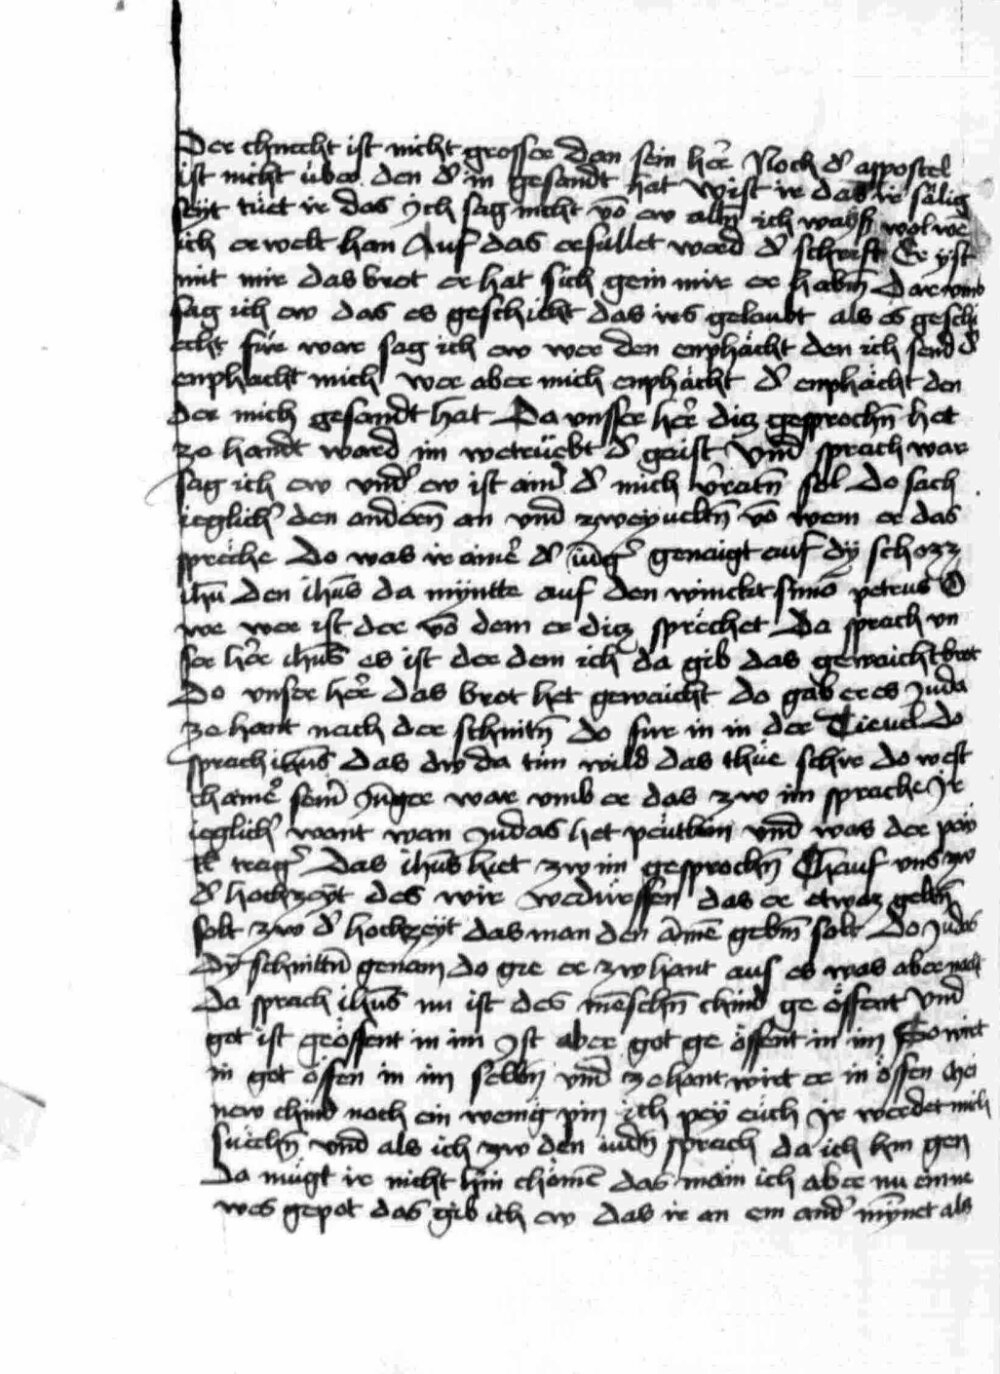 Der chnecht ist nicht grosser den sein her̄ Noch d' appostel
ist nicht über den d' in gesandt hat Wist ir das ir sälig
seyt tüet ir das ych sag nicht vō ew alln̄ ich wayss wol wē
ich erwelt han Auf das erfullet werd d' schrift Er yst
mit mir das brot er hat sich gein mir er habm̄ Darvmb
sag ich ew das es geschicht das irs geloubt als es geschi
echt für war sag ich ew wer den enphächt den ich send d'
enphacht mich wer aber mich enphächt d' enphächt den
der mich gesandt hat Da vnsser her̄ dicz gesprochn̄ het
ze handt ward im wetrüebt d' geist Vnd sprach war
sag ich ew vnd' ew ist ain' d' mich v'ratn̄ sol Do sach
ieglich' den andern̄ an vnd zweyueltn̄ vō wem er das
spreche Do was ir ainer d' iūg' genaigt auf dy schozz
ihū den ihūs da mynte auf den winckt simō petrus O
we wer ist der vō dem er dicz sprechet Da sprach vn
ser her̄ ihūs es ist der dem ich da gib das geweicht brot
Do vnser her̄ das brot het gewaicht do gab er es Juda
ze hant nach der schnitn̄ do fur in in der Tieuel do
sprach ihūs das dw da tun wild das thue schir do west
chainer sein' Junger war vmb er das zw im sprache Ir
ieglich' want wan Judas het peutlein vnd was der pew
tl treg' Das ihūs hiet zw im gesprochn̄ Chauf vns zw
d' hochzeyt des wir wedürffen das er etwaz geltn̄
solt zw d' hochzeyt das man den armē gebm̄ solt Do Judas
dy schnittn̄ genam do gie er zw hant aus es was aber nacht
Da sprach ihūs nu ist des mēschn̄ chind ge öffent Vnd
got ist geöffent in im Ist aber got ge öffent in im So wirt
in got öffen in im selbn̄ vnd ze hant wirt er in öffen Mei
new chind noch ein wenig pin ich pey euch Ir werdet mich
suechn̄ vnd als ich zw den iudn̄ sprach da ich hin gen
da mügt ir nicht hin chömē das main ich aber nu ein ne
wes gepot das gib ich ew das ir an ein and' mynnet als